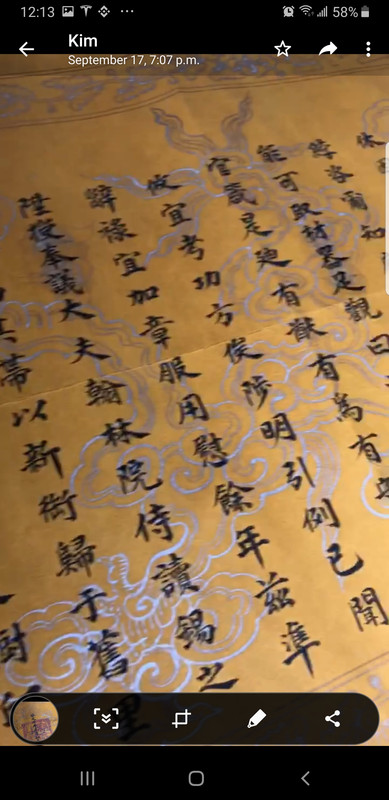 12:13
58%
Kim
September 17, 7:07 p.m.
知
能可取材器足觀曰
官箴是迪有猷有為有
攸宜考功方俟陟明引例已聞
宜加章服用慰餘年茲準
陞授奉議大夫翰林院侍讀錫之
帶以新銜歸于舊里